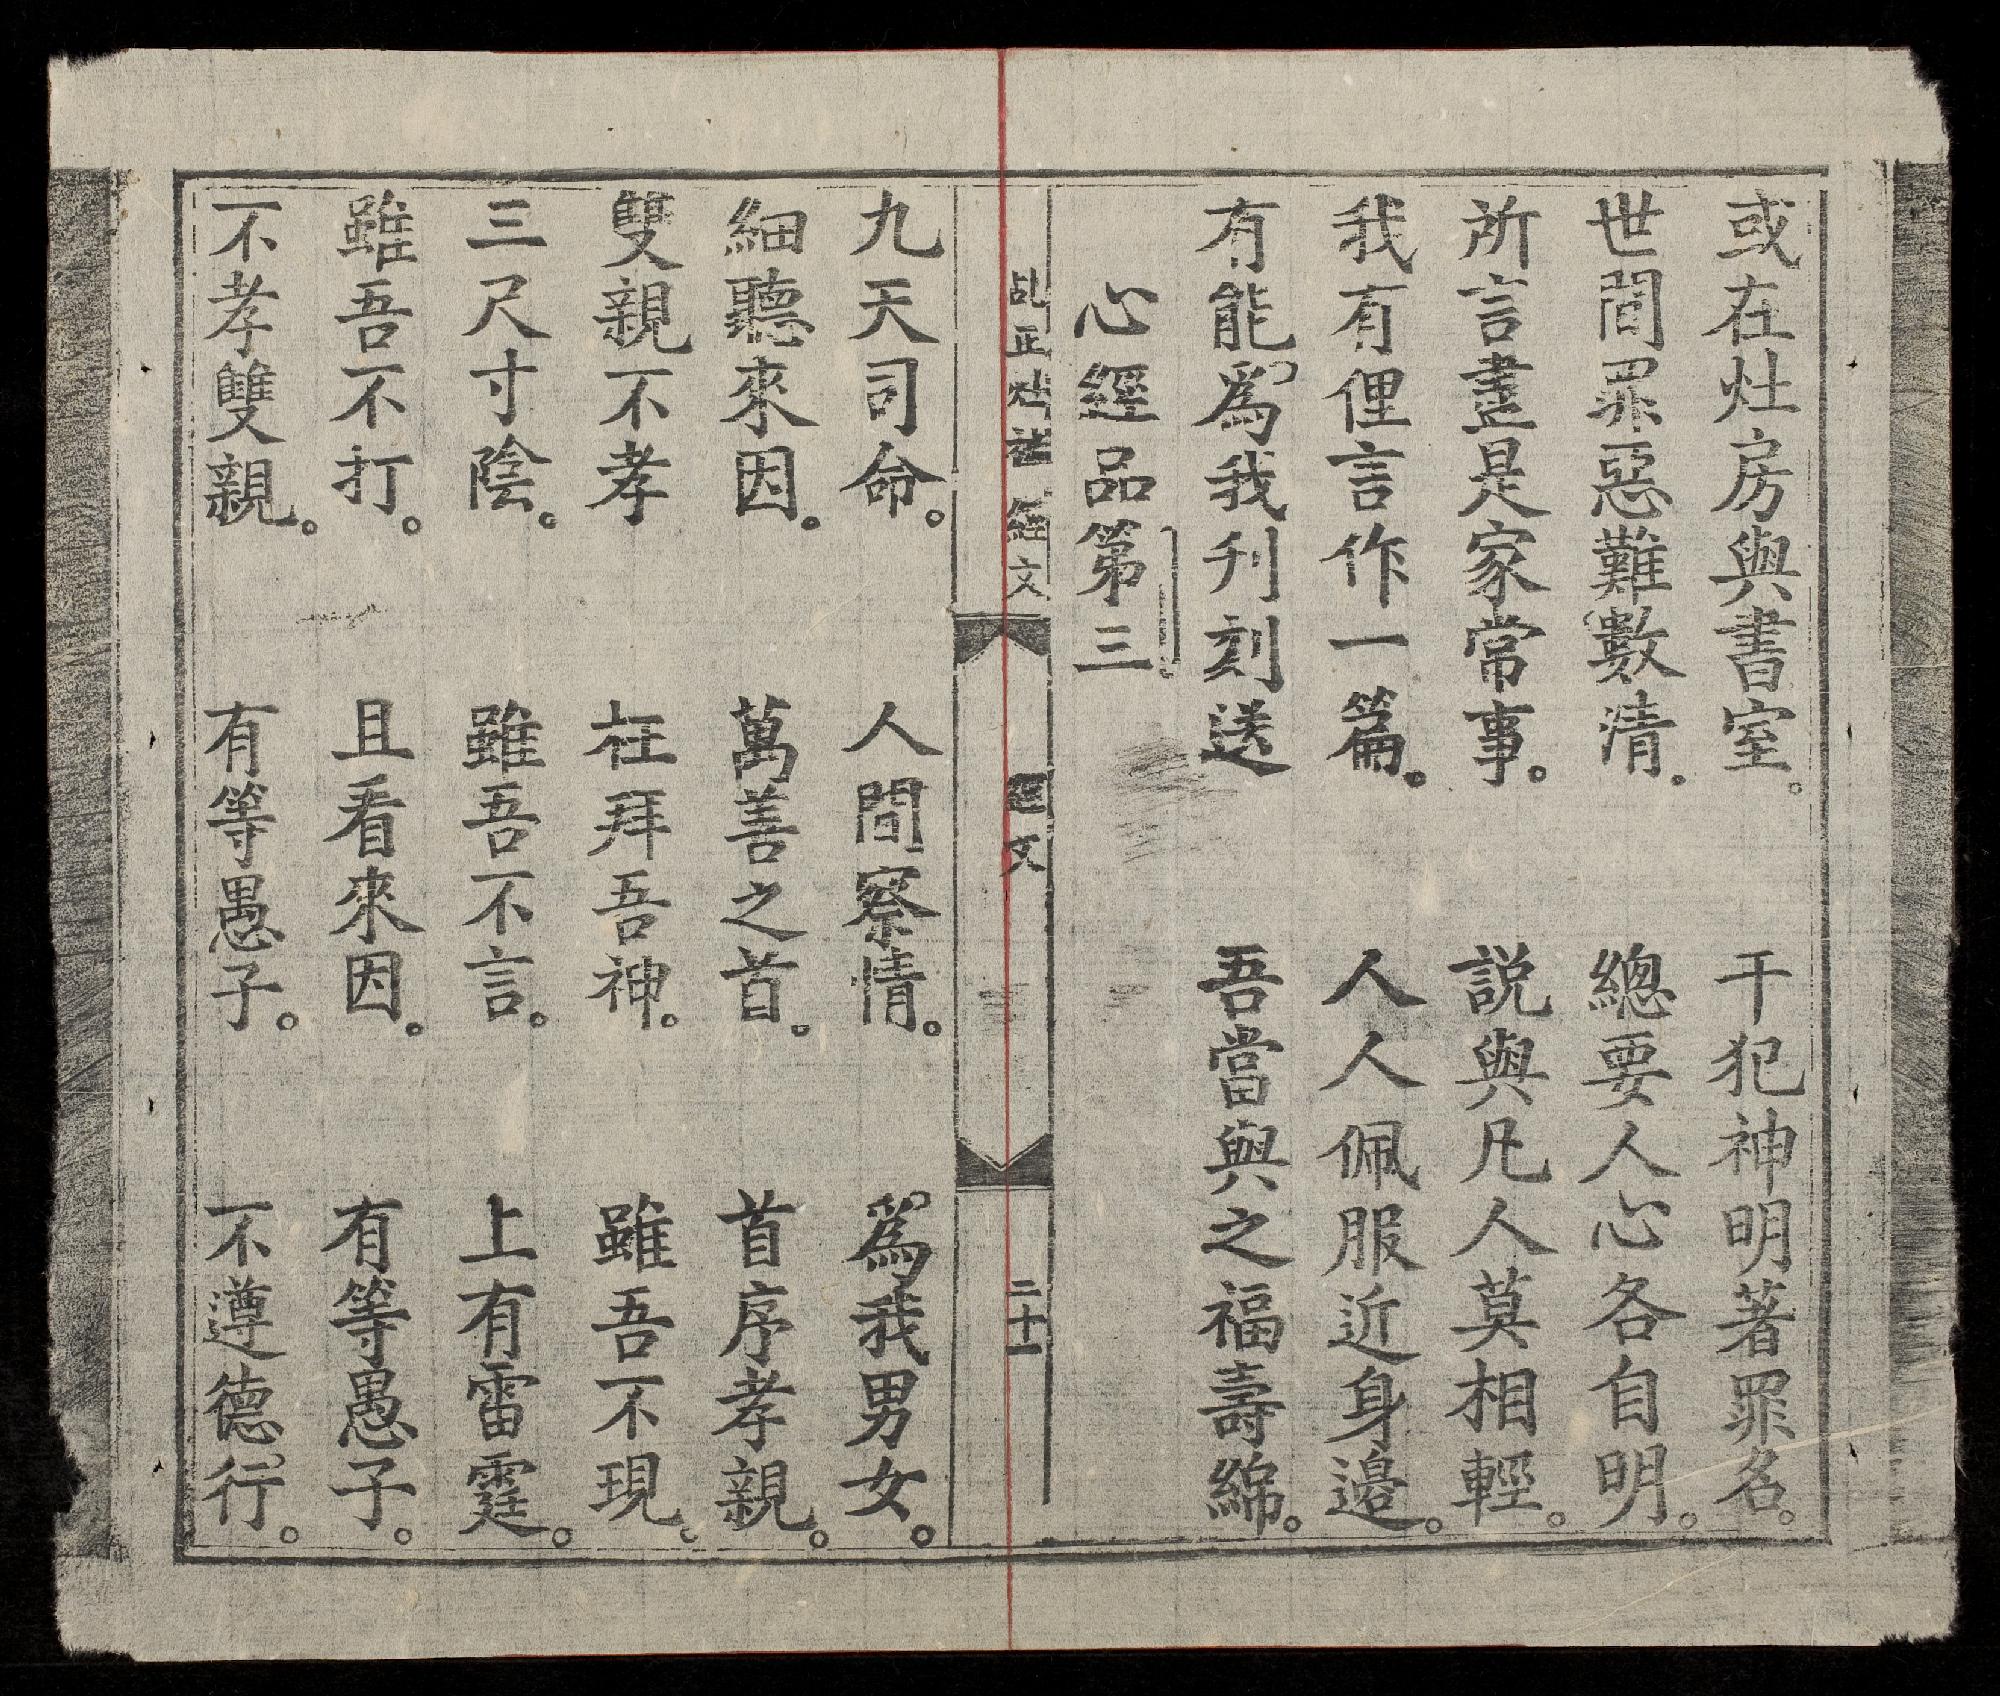 或在灶房與書室。　干犯神明著罪名。
世間罪惡難數清。　總要人心各自明。
所言盡是家常事。　説與凡人莫相輕。
我有俚言作一篇。　人人佩服近身邉。
有能爲我刋刻送　吾當與之福壽綿。
心經品第三
正灶 經文
文
二十一
九天司命。　人間察情。　爲我男女。
細聽來因。　萬善之首。　首序孝親。
雙親不孝　枉拜吾神。　雖吾不現。
三尺寸陰。　雖吾不言。　上有雷霆。
雖吾不打。　且看來因。　有等愚子。
不孝雙親。　有等愚子。　不遵德行。